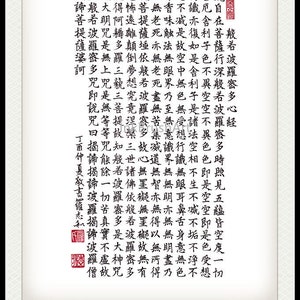 般若波羅密多心經
自在菩薩行深般若波羅密多時照見五蘊皆空度一切
厄舍利子色不異空空不異色色即是空空即是色受想
識亦復如是舍利子是諸法空相不生不滅不垢不淨不
不減是故空中無色無受想行識無眼耳鼻舌身意無色
香味觸法無眼界乃至無意識界無無明亦無無明盡
無老死亦無老死盡無苦集滅道無智亦無得以無所得
菩提薩埵依般若波羅密多故心無罣礙無罣礙故無有
怖遠離顛倒夢想究竟涅槃三世諸佛依般若波羅密多
得阿耨多羅三藐三菩提故知般若波羅密多是大神咒
大明咒是無上咒是無等等咒能除一切苦真實不虛故
般若波羅密多咒即說咒曰揭諦揭諦波羅揭諦波羅僧
諦菩提薩婆訶
丁酉仲夏敬書